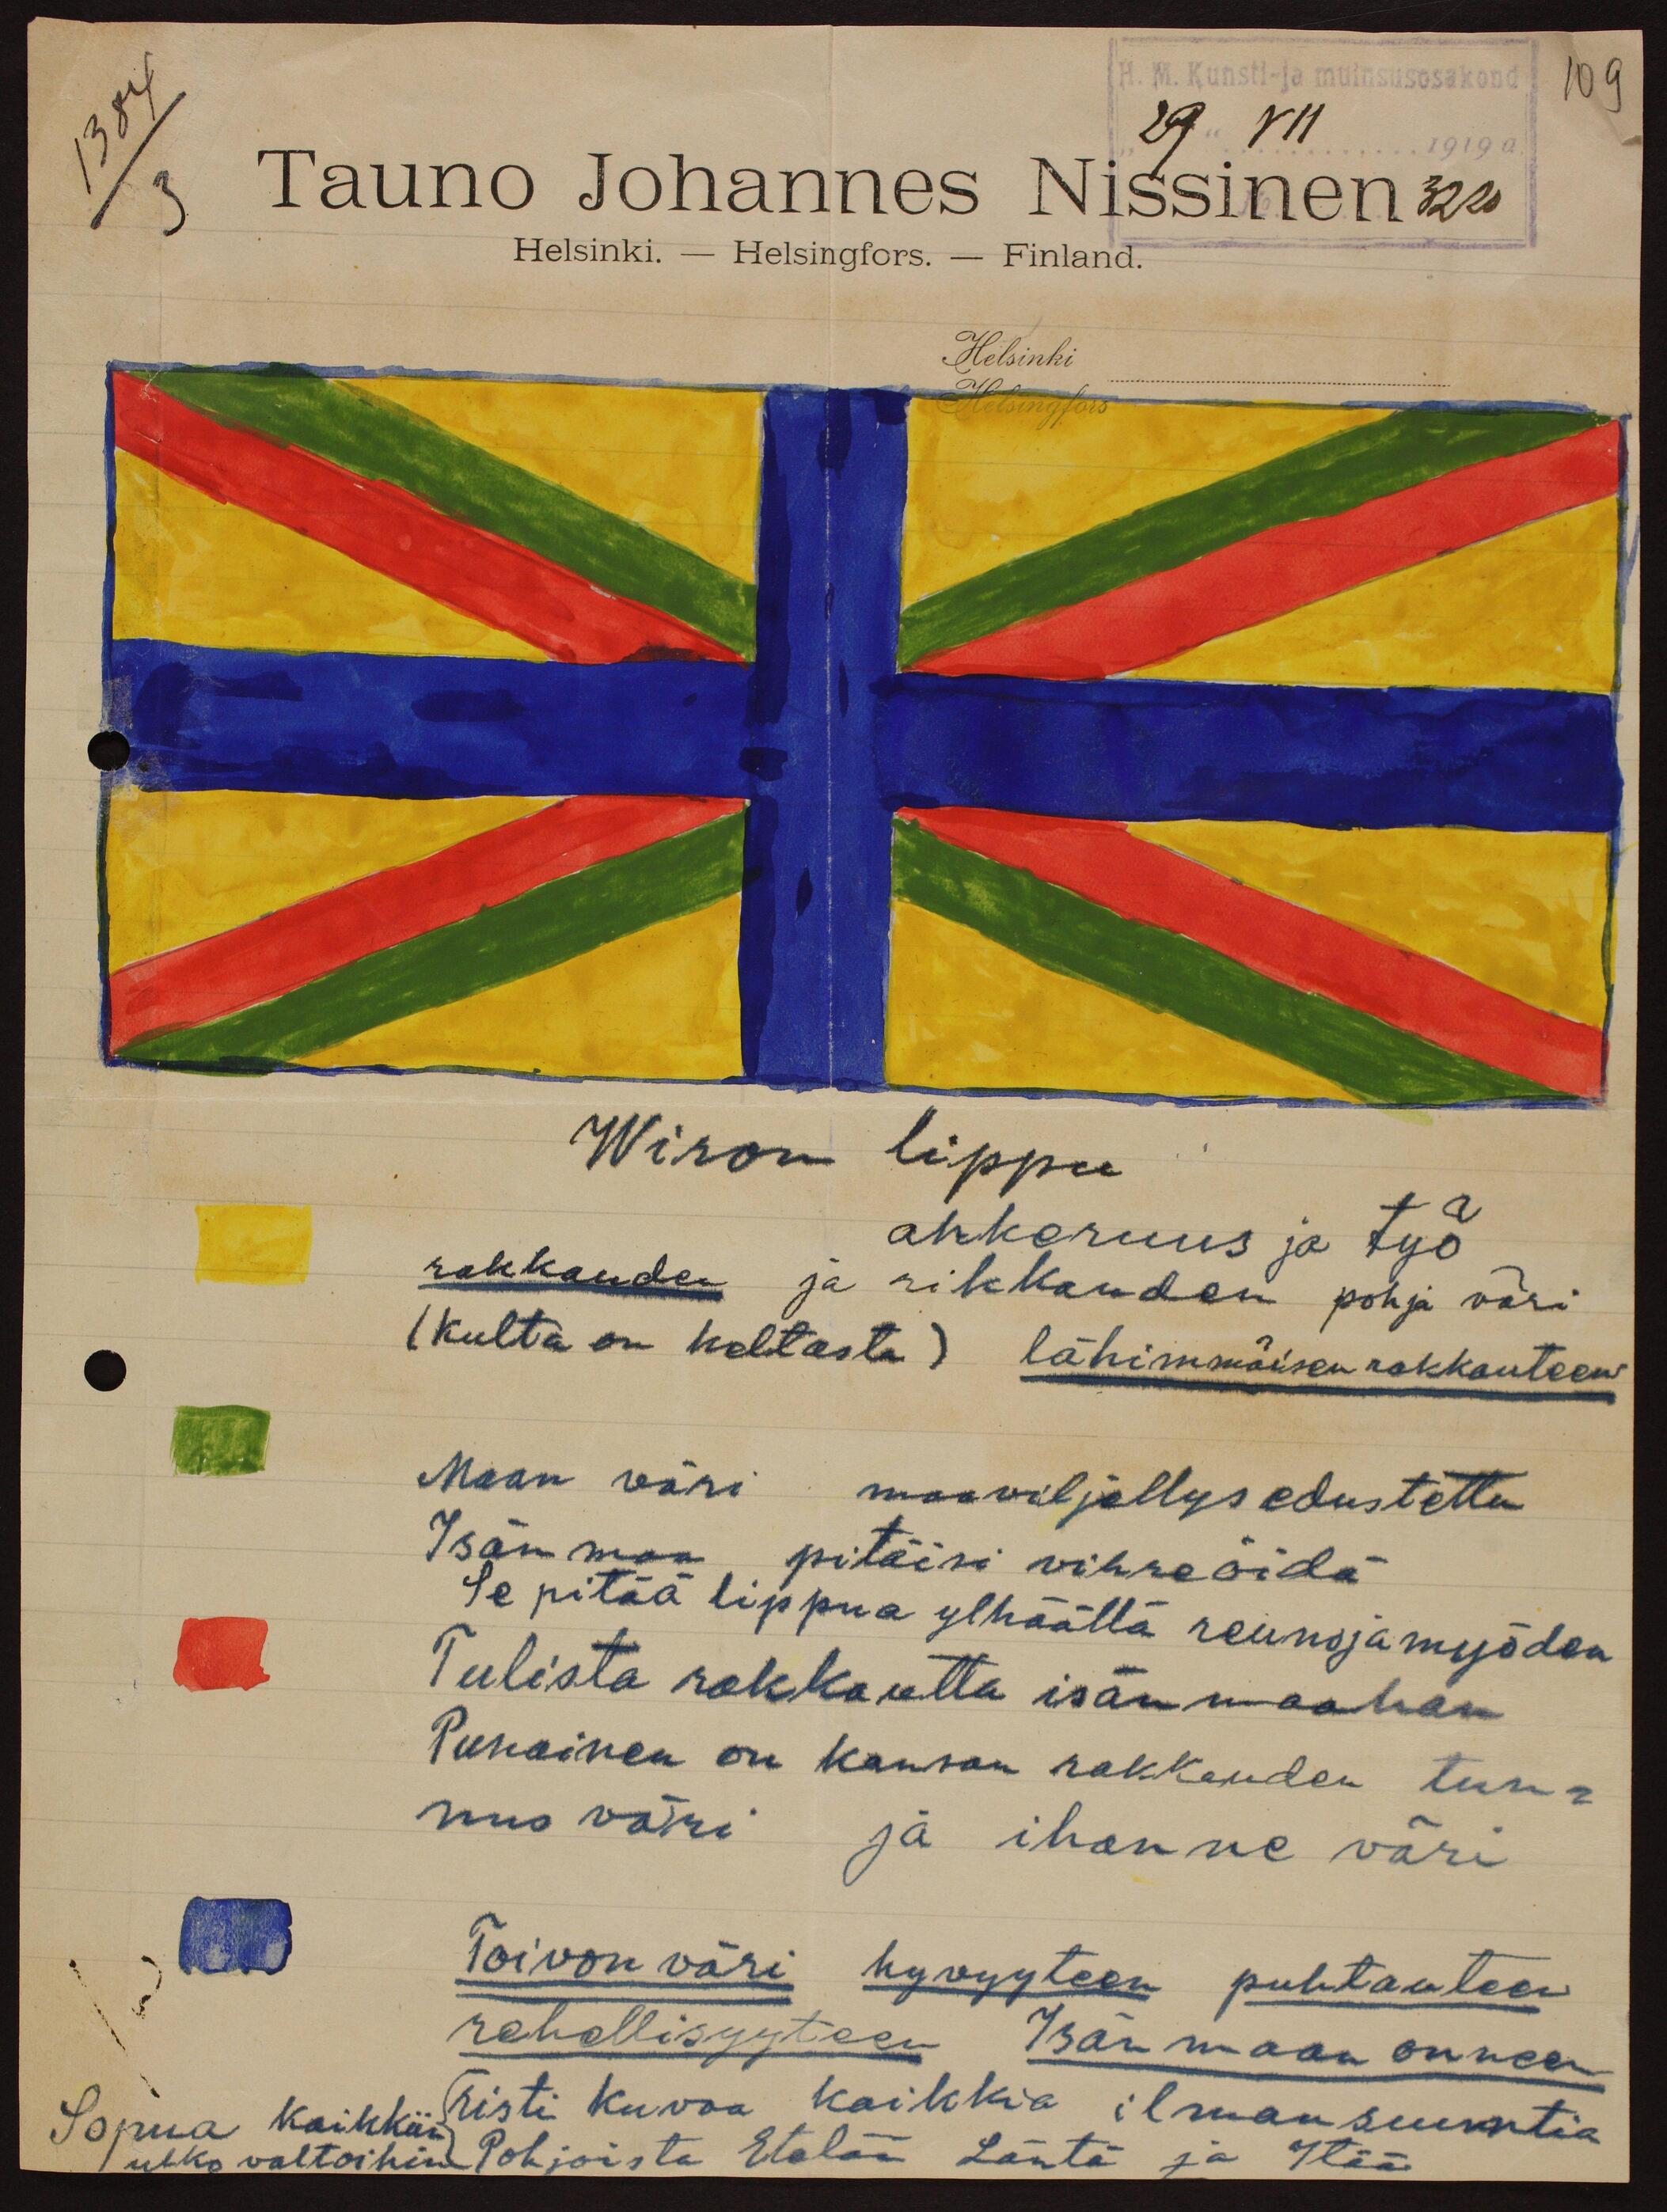 1384/3
109
H. M. Kunsti-ja muinsusosakond
29 " VII 1919 a.
3220
Tauno Johannes Nissinen
Helsinki. — Helsingfors. — Finland.
Helsinki
Helsingfors
Wiron lippu
ahkeruus ja työ
rakkauden ja rikkauden pohja väri
(Kulta on keltasta) lähimmäisen rakkauteen
Maan väri maaviljellys edustettu
Isänmaa pitäisi vihreöidä
Se pitää lippua ylhäällä reunoja myöden
Tulista rakkautta isänmaahan
Punainen on kansan rakkauden tun=
nus väri ja ihanne väri
Toivon väri hyvyyteen puhtauteen
rehellisyyteen Isänmaan onneen
(risti kuvaa kaikkia ilmansuuntia
Pohjoista Etelää Läntä ja Itää
Sopua kaikkiin
ulko valtoihin)